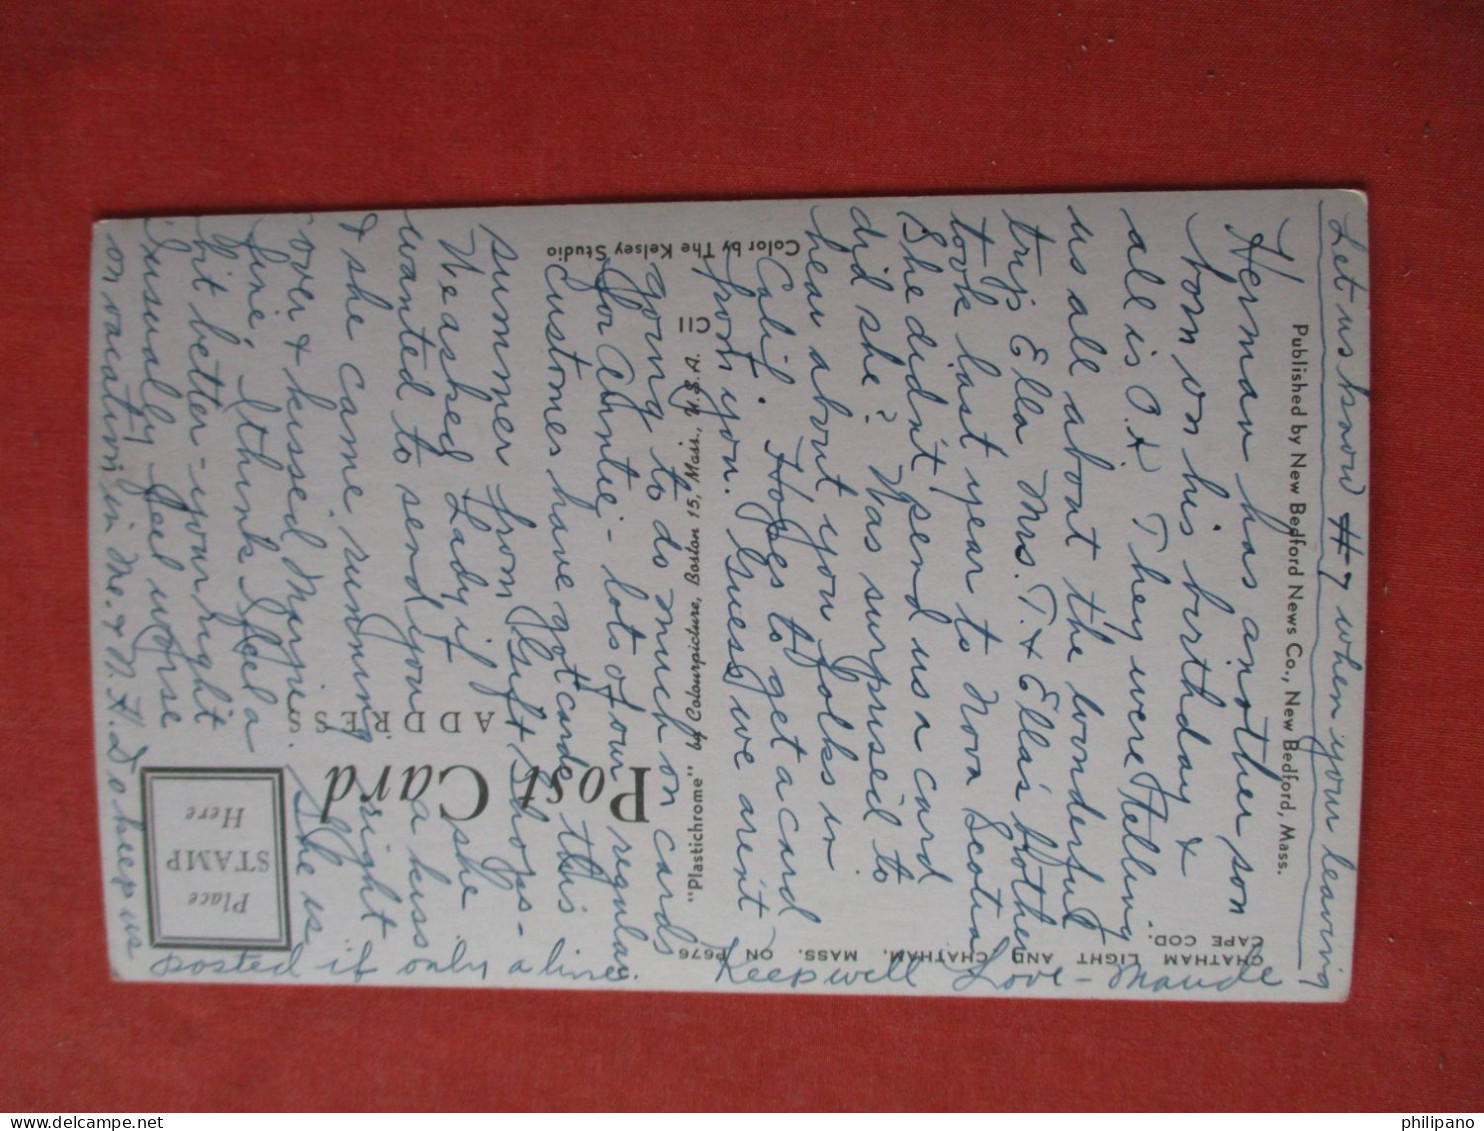 Let us know #7 when your leaving
Herman has another son
born on his birthday &
all is O.K They were telling
us all about the wonderful
trip Ella Mrs. T. & Ella's Mother
took last year to Nova Scotia
She didn't send us a card
did she? Was surprised to
hear about you folks in
Calif. Hopes to get a card
from you. Guess we aren't
going to do much on cards
for Auntie - lots of our regular
customers have got cards this
summer from Gift Shops -
We asked Lady if she
wanted to send you a kiss
& she came running right
over & kissed Marjie. She is
fine, I think I feel a
bit better - your right
Usually feel worse
on vacation in Me. & N.H. Do keep us
posted if only a line.
Keep well Love - Maude
Published by New Bedford News Co., New Bedford, Mass.
CHATHAM LIGHT AND CHATHAM, MASS. ON
CAPE COD.
P676
"Plastichrome" by Colourpicture, Boston 15, Mass., U.S.A.
C11
Color by The Kelsey Studio
Post Card
ADDRESS
Place
STAMP
Here
philipano